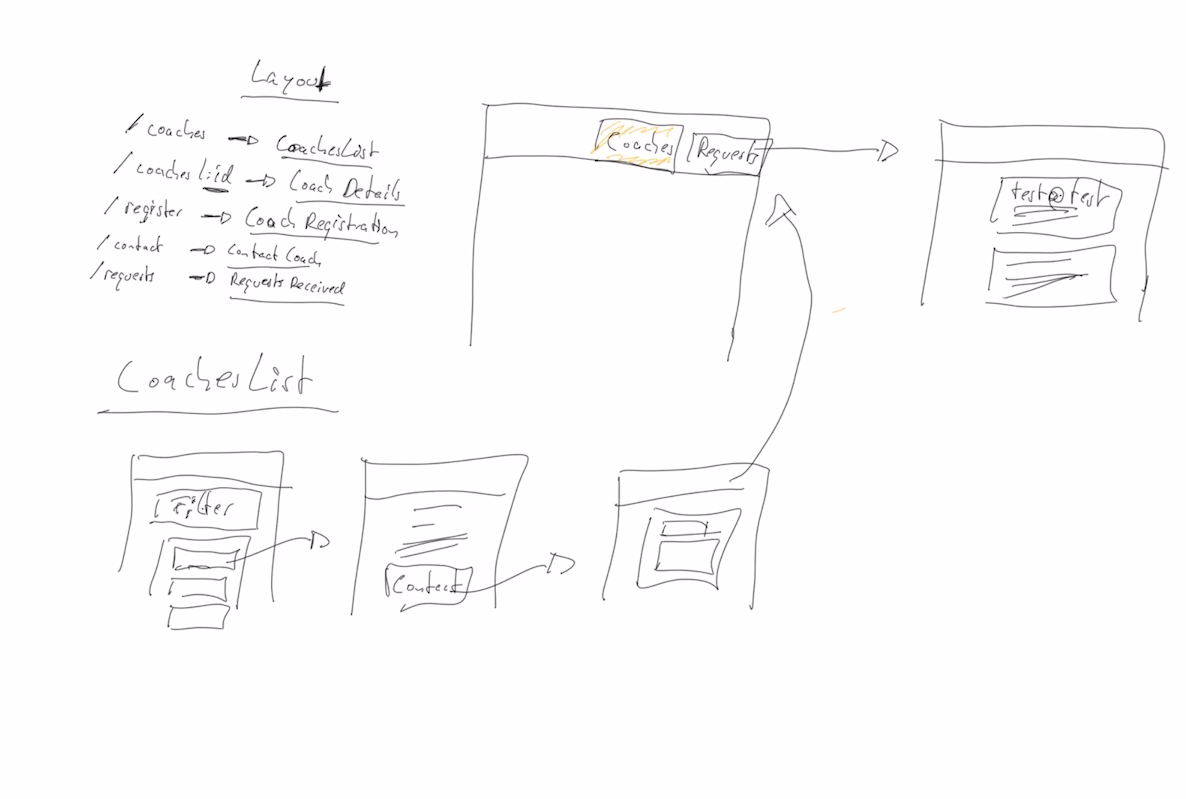 Layout
/coaches → CoachesList
/coaches/:id → Coach Details
/register → Coach Registration
/contact → Contact Coach
/requests → Requests Received
Coaches
Requests
test@test
CoachesList
Filter
Contact